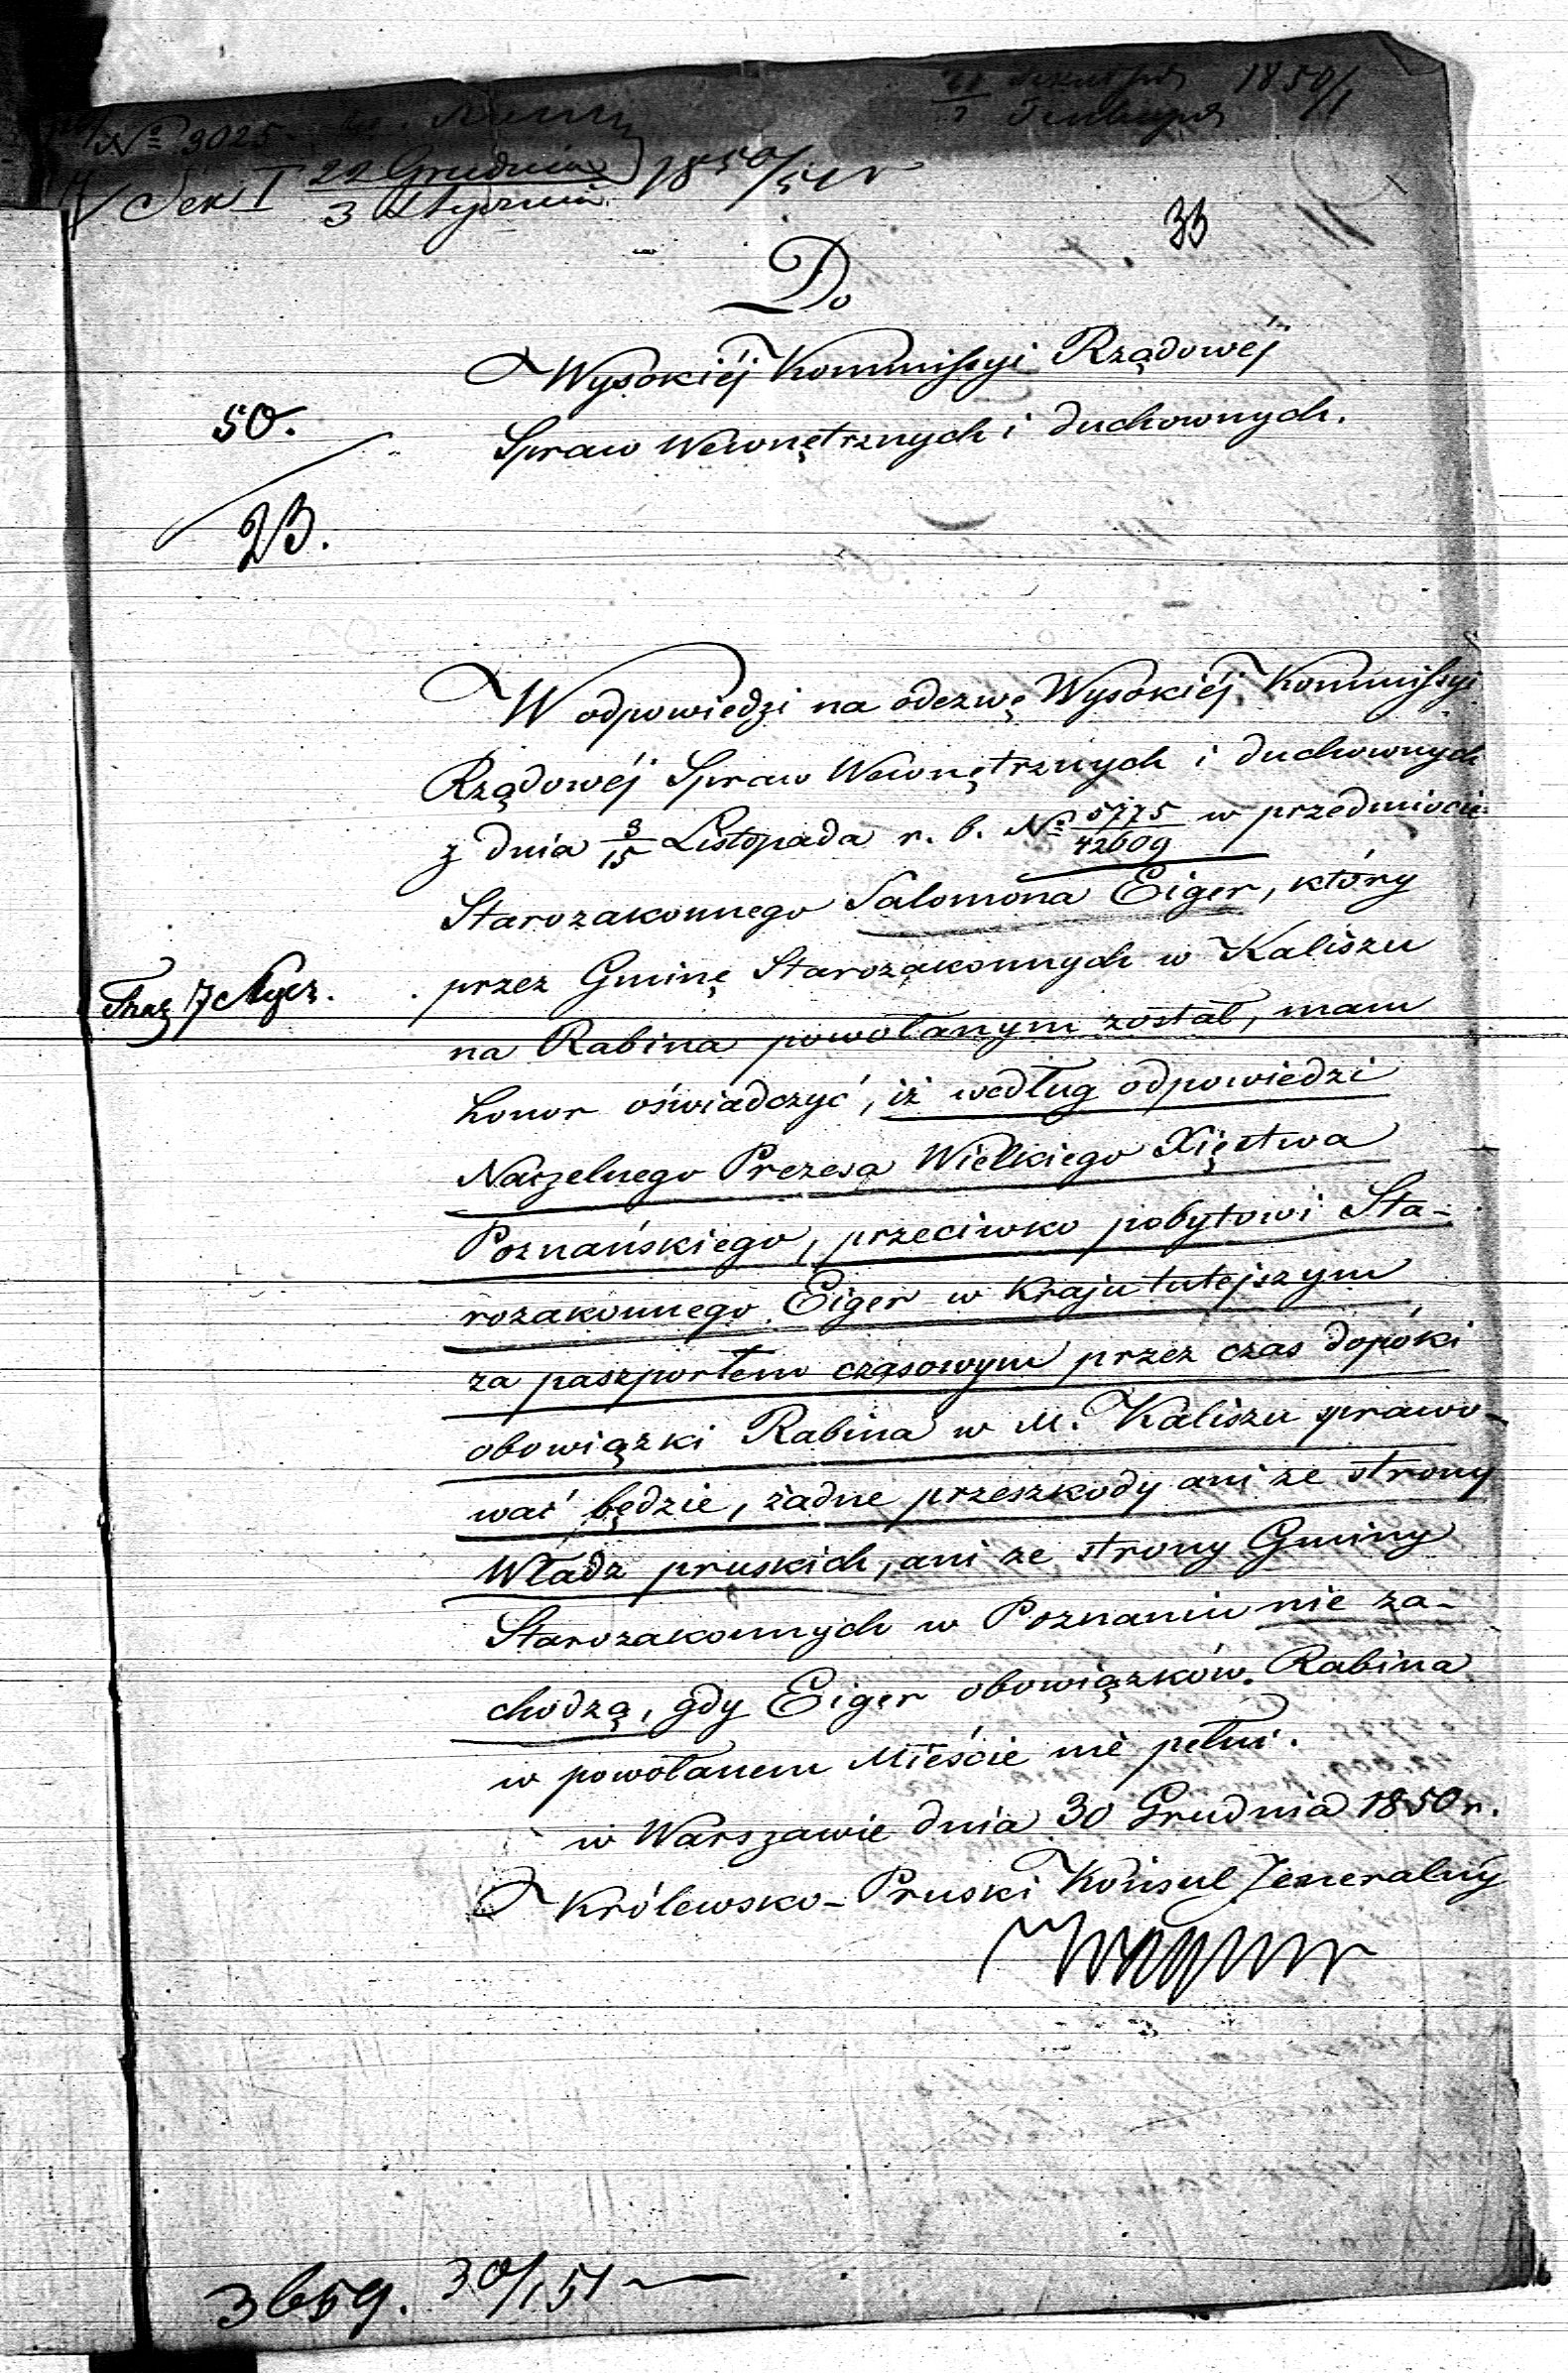 № 9025
Sek I 22 Grudnia / 3 Stycznia 1850/51 r
1850/1
33
Do
Wysokiéj Kommissyi Rządowéj
Spraw Wewnętrznych i Duchownych.
50.
23.
W odpowiedzi na odezwę Wysokiéj Kommissyi
Rządowéj Spraw Wewnętrznych i Duchownych
z dnia 3/15 Listopada r. b. № 5775/42609 w przedmiocie
Starozakonnego Salomona Eiger, który
przez Gminę Starozakonnych w Kaliszu
na Rabina powołanym został, mam
honor oświadczyć, iż według odpowiedzi
Naczelnego Prezesa Wielkiego Xięstwa
Poznańskiego, przeciwko pobytowi Sta-
rozakonnego Eiger w Kraju tutejszym
za paszportem czasowym przez czas dopóki
obowiązki Rabina w M. Kaliszu sprawo-
wać będzie, żadne przeszkody ani ze strony
Władz pruskich, ani ze strony Gminy
Starozakonnych w Poznaniu nie za-
chodzą, gdy Eiger obowiązków Rabina
w powołanem Mieście nie pełni.
w Warszawie dnia 30 Grudnia 1850 r.
Królewsko-Pruski Konsul Jeneralny
Wagner
3659. 30/1 51